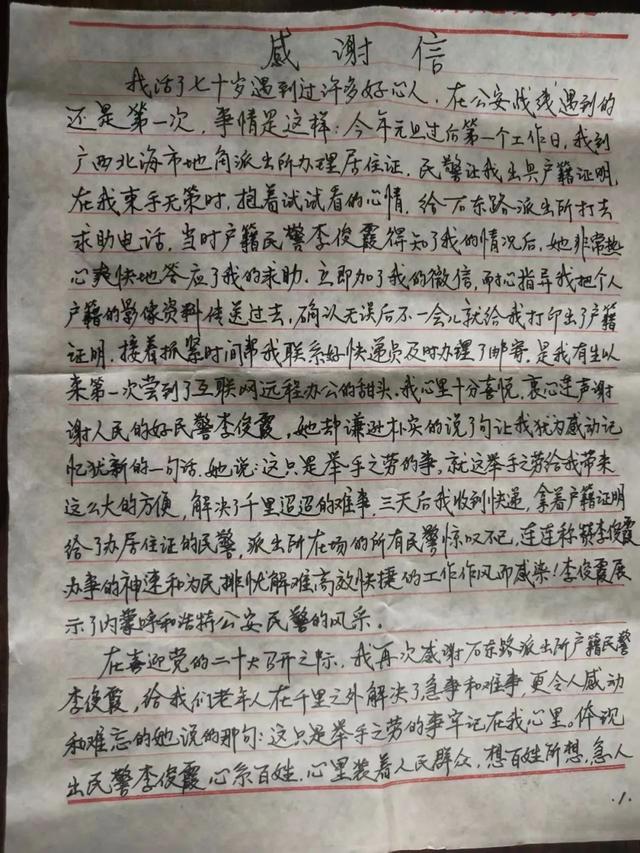 感谢信
我活了七十岁遇到过许多好心人，在公安战线遇到的
还是第一次，事情是这样：今年元旦过后第一个工作日，我到
广西北海市地角派出所办理居住证，民警让我出具户籍证明，
在我束手无策时，抱着试试看的心情，给石东路派出所打去
求助电话，当时户籍民警李俊霞得知了我的情况后，她非常热
心爽快地答应了我的求助，立即加了我的微信，耐心指导我把个人
户籍的影像资料传送过去，确认无误后不一会儿就给我打印出了户籍
证明，接着抓紧时间帮我联系好快递员及时办理了邮寄，是我有生以
来第一次尝到了互联网远程办公的甜头，我心里十分喜悦，衷心连声谢
谢人民的好民警李俊霞，她却谦逊朴实的说了句让我犹为感动记
忆犹新的一句话，她说：这只是举手之劳的事，就这举手之劳给我带来
这么大的方便，解决了千里迢迢的难事，三天后我收到快递，拿着户籍证明
给了办居住证的民警，派出所在场的所有民警惊叹不已，连连称赞李俊霞
办事的神速和为民排忧解难高效快捷的工作作风而感染！李俊霞展
示了内蒙呼和浩特公安民警的风采。
在喜迎党的二十大召开之际，我再次感谢石东路派出所户籍民警
李俊霞，给我们老年人在千里之外解决了急事和难事，更令人感动
和难忘的她说的那句：这只是举手之劳的事牢记在我心里。体现
出民警李俊霞心系百姓，心里装着人民群众，想百姓所想，急人
.1.